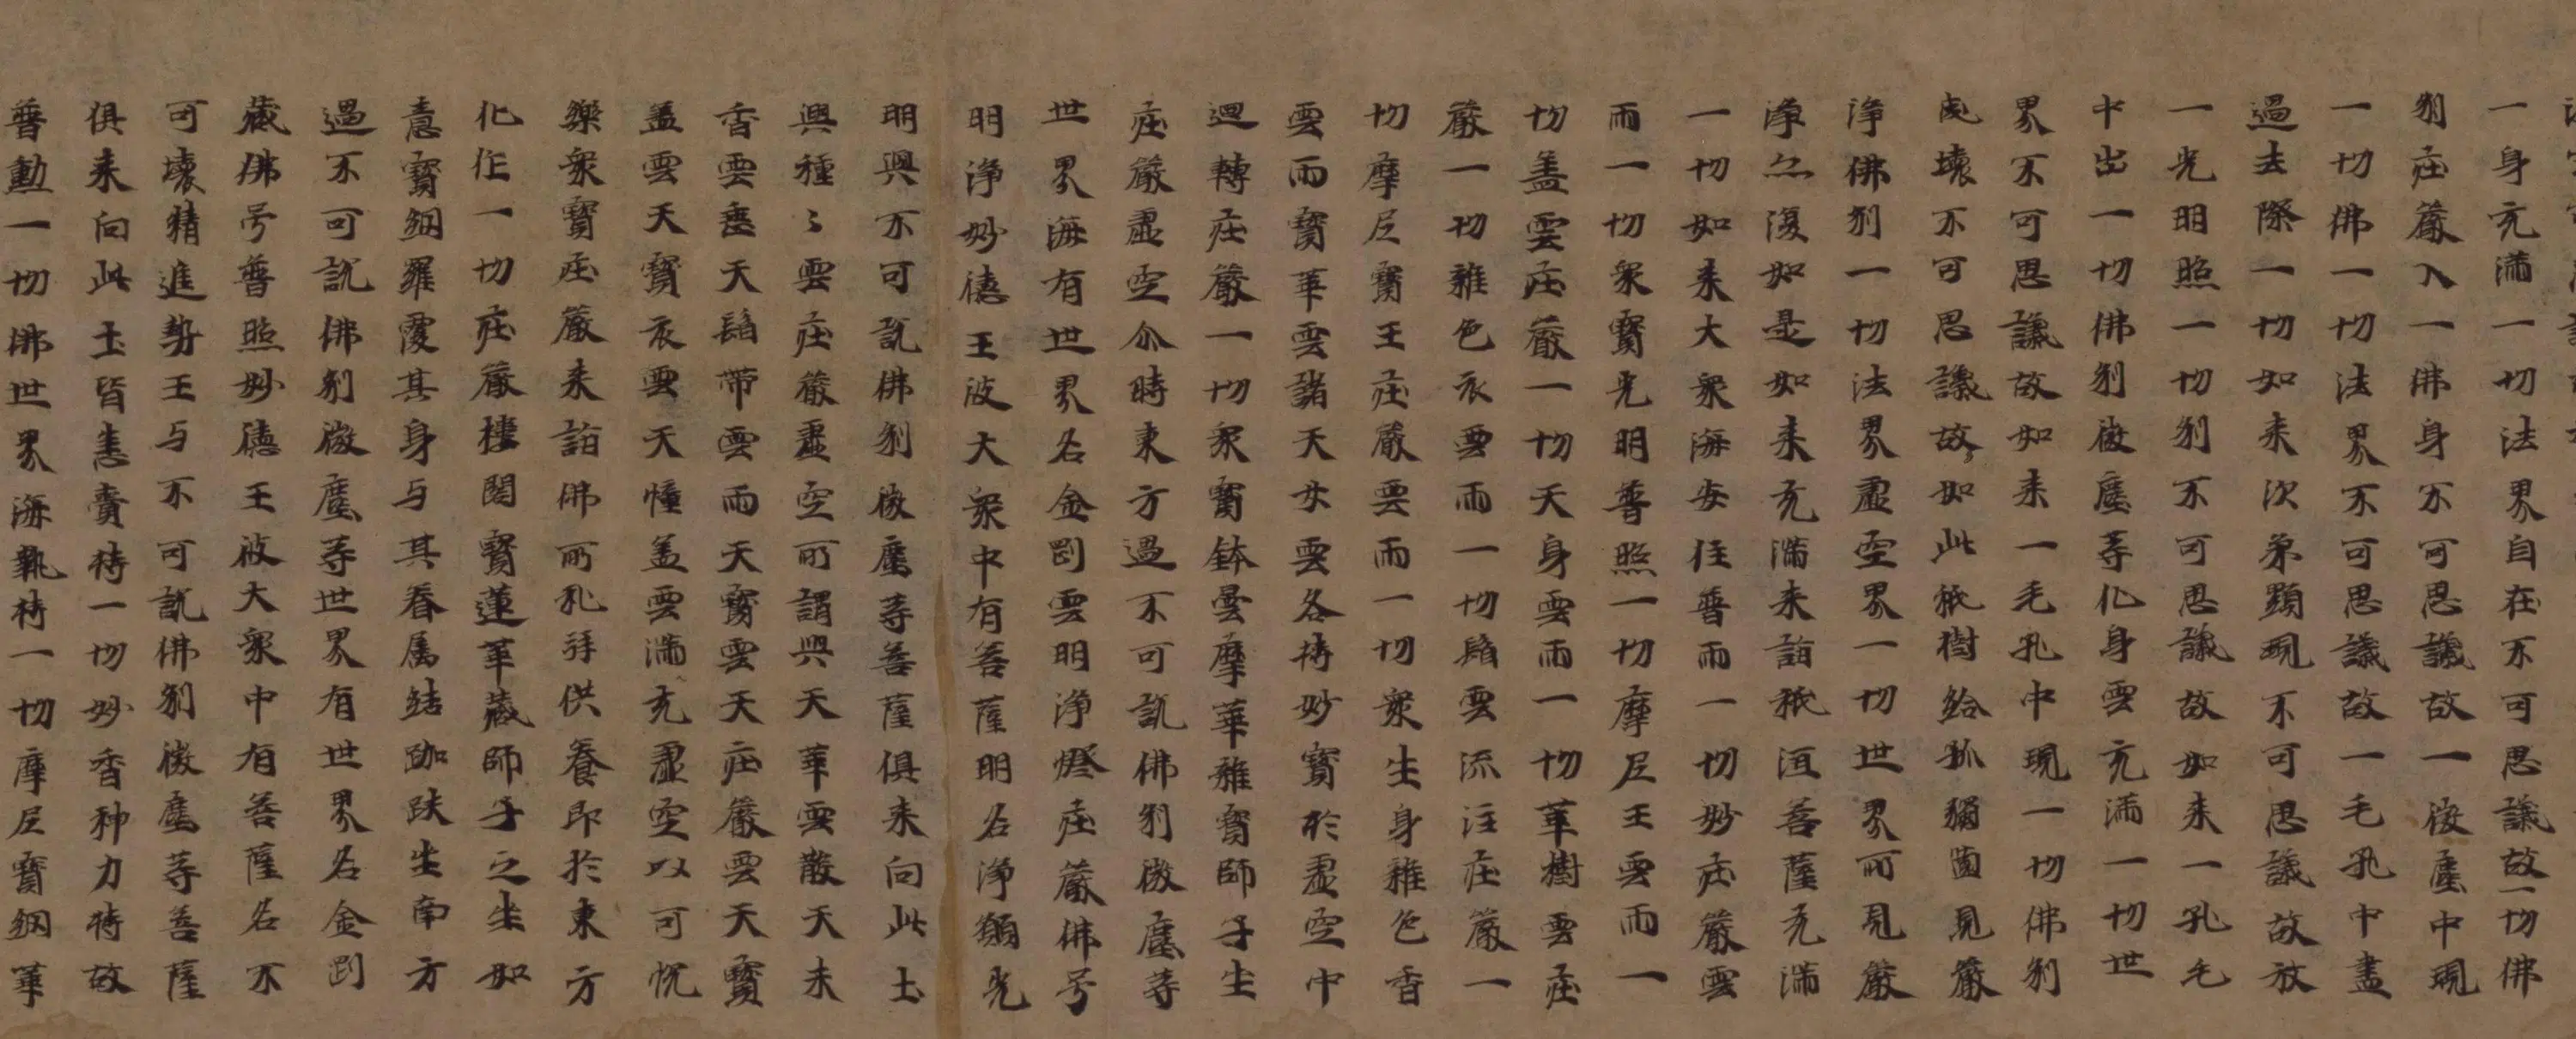 一身充滿一切法界自在不可思議故一切佛
刹莊嚴入一佛身不可思議故一微塵中現
一切佛一切法界不可思議故一毛孔中盡
過去際一切如来次第顯現不可思議故放
一光明照一切刹不可思議故如来一孔毛
中出一切佛刹微塵等化身雲充滿一切世
界不可思議故如来一毛孔中現一切佛刹
成壞不可思議故如此祇樹給孤獨園見嚴
淨佛刹一切法界虛空界一切世界所見嚴
淨亦復如是如来充滿来詣祇洹菩薩充滿
一切如来大衆海安住普雨一切妙莊嚴雲
雨一切衆寶光明普照一切摩尼王雲雨一
切盖雲莊嚴一切天身雲雨一切華樹雲莊
嚴一切雜色衣雲雨一切鬘雲流注莊嚴一
切摩尼寶王莊嚴雲雨一切衆生身雜色香
雲雨寶華雲諸天女雲各持妙寶於虛空中
迴轉莊嚴一切衆寶鉢曇摩華雜寶師子坐
莊嚴虛空尒時東方過不可說佛刹微塵等
世界海有世界名金剛雲明淨燈莊嚴佛号
明淨妙德王彼大衆中有菩薩明名淨願光
明與不可說佛刹微塵等菩薩俱来向此土
興種〻雲莊嚴虛空所謂興天華雲散天末
香雲垂天鬘帶雲雨天寶雲天莊嚴雲天寶
盖雲天寶衣雲天幢盖雲滿充虛空以可悅
樂衆寶莊嚴来詣佛所礼拜供養即於東方
化作一切莊嚴樓閣寶蓮華藏師子之坐如
意寶網羅覆其身与其眷属結跏趺坐南方
過不可說佛刹微塵等世界有世界名金剛
藏佛号普照妙德王彼大衆中有菩薩名不
可壞精進勢王与不可說佛刹微塵等菩薩
俱来向此土皆悉賷持一切妙香神力持故
普勳一切佛世界海執持一切摩尼寶網華